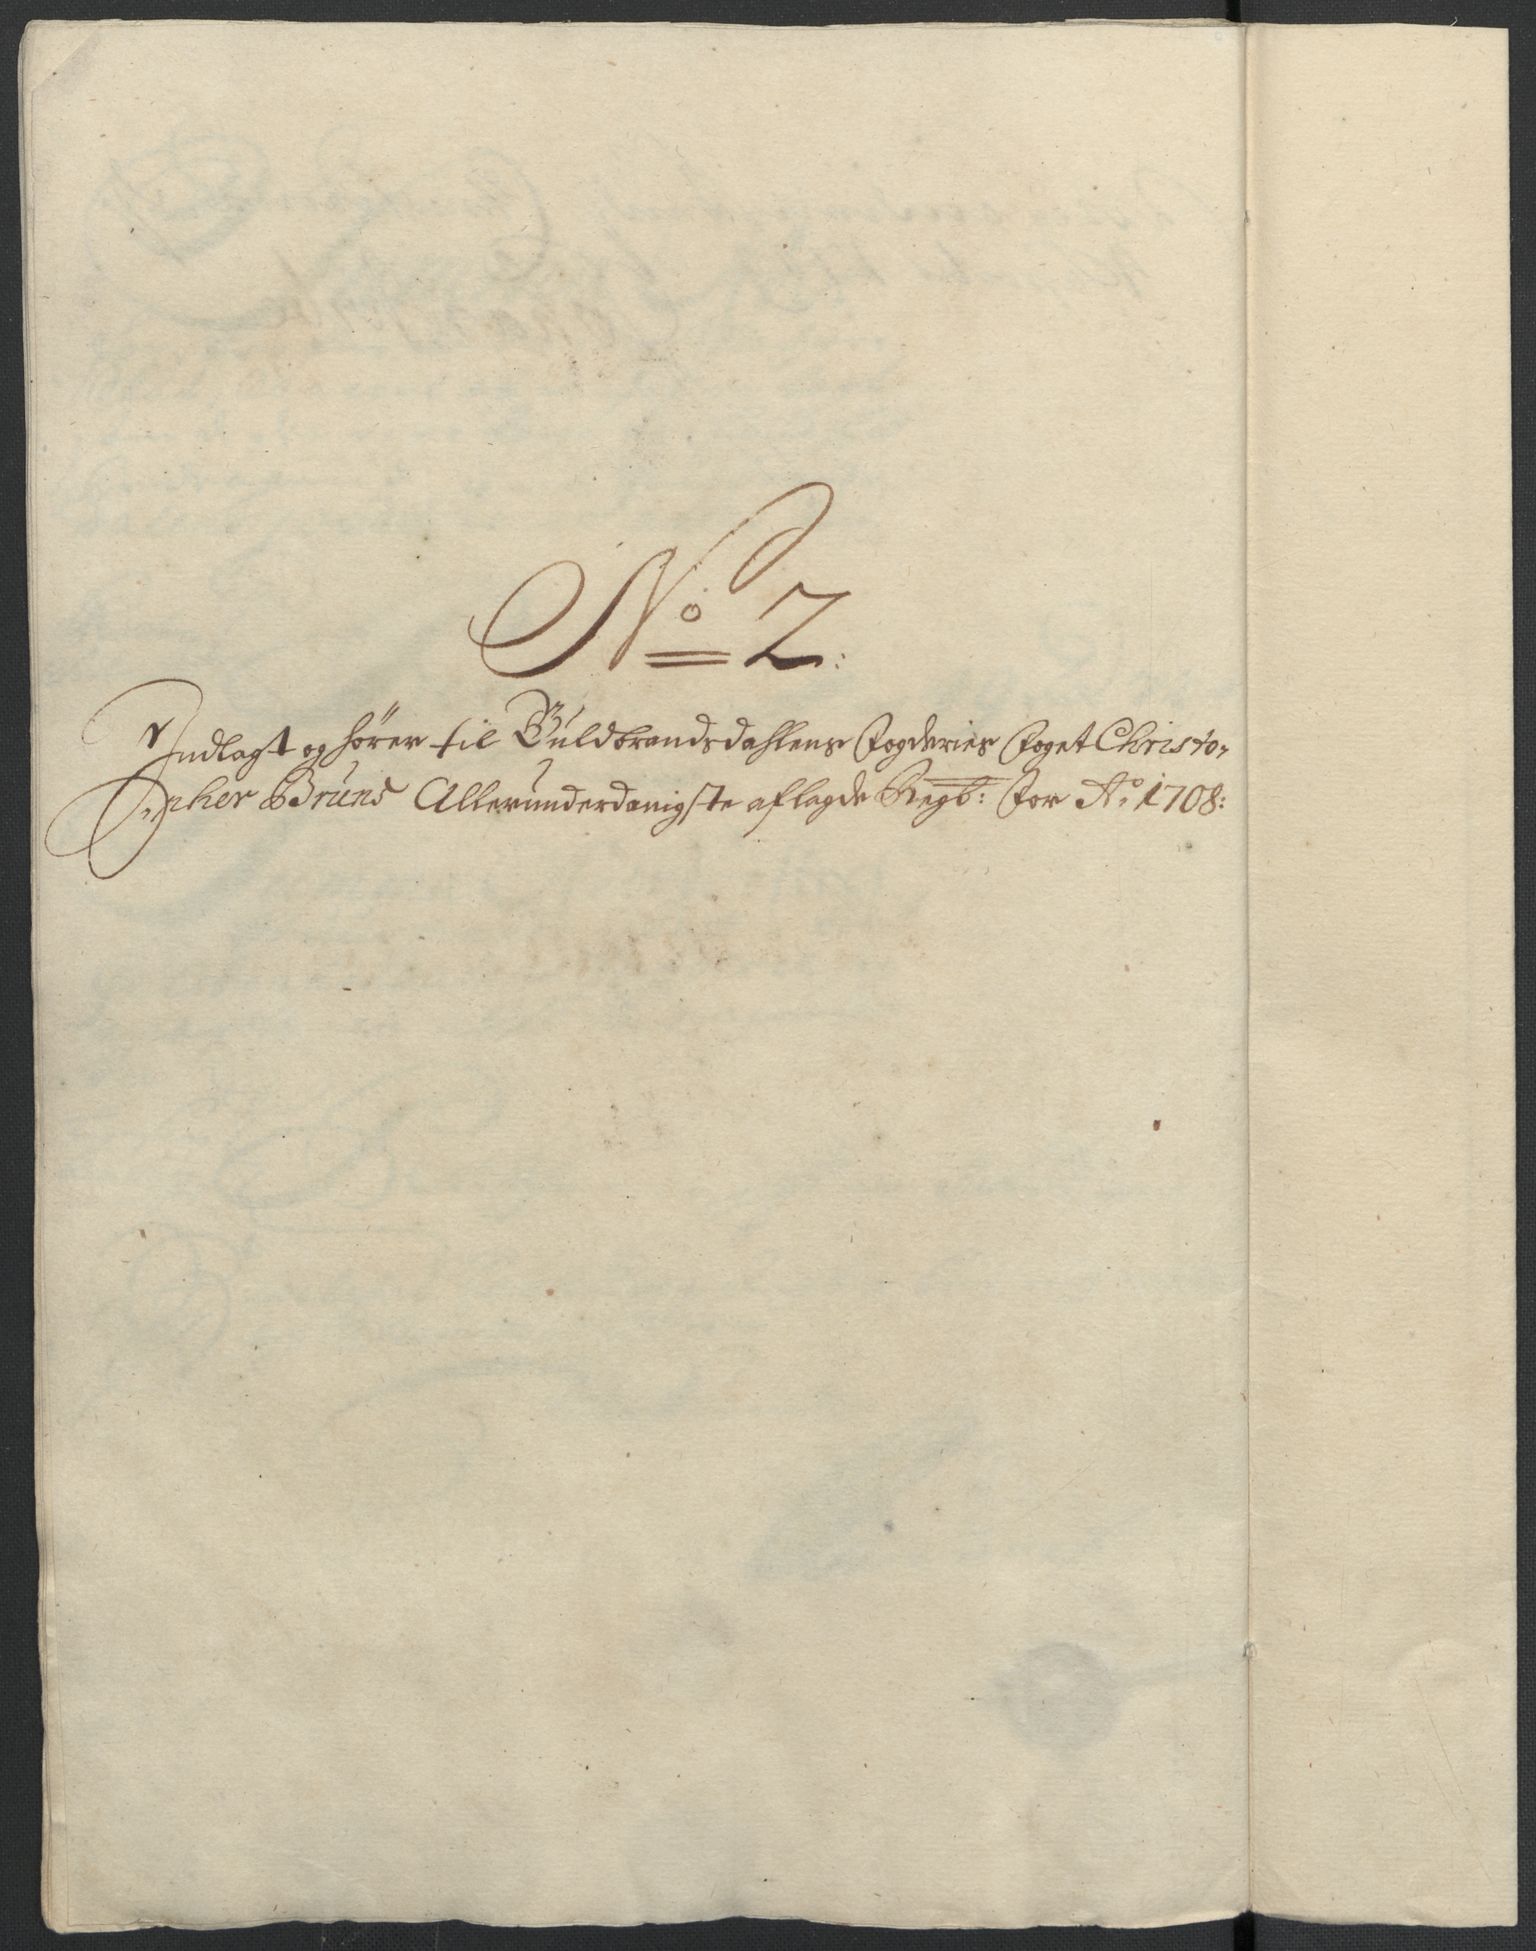 No 2:
Indlagt og hører til Guldbrandsdahlens Fogderies Foget Christo„
„pher Bruns Allerunderdanigste aflagde Regb: for Ao 1708: